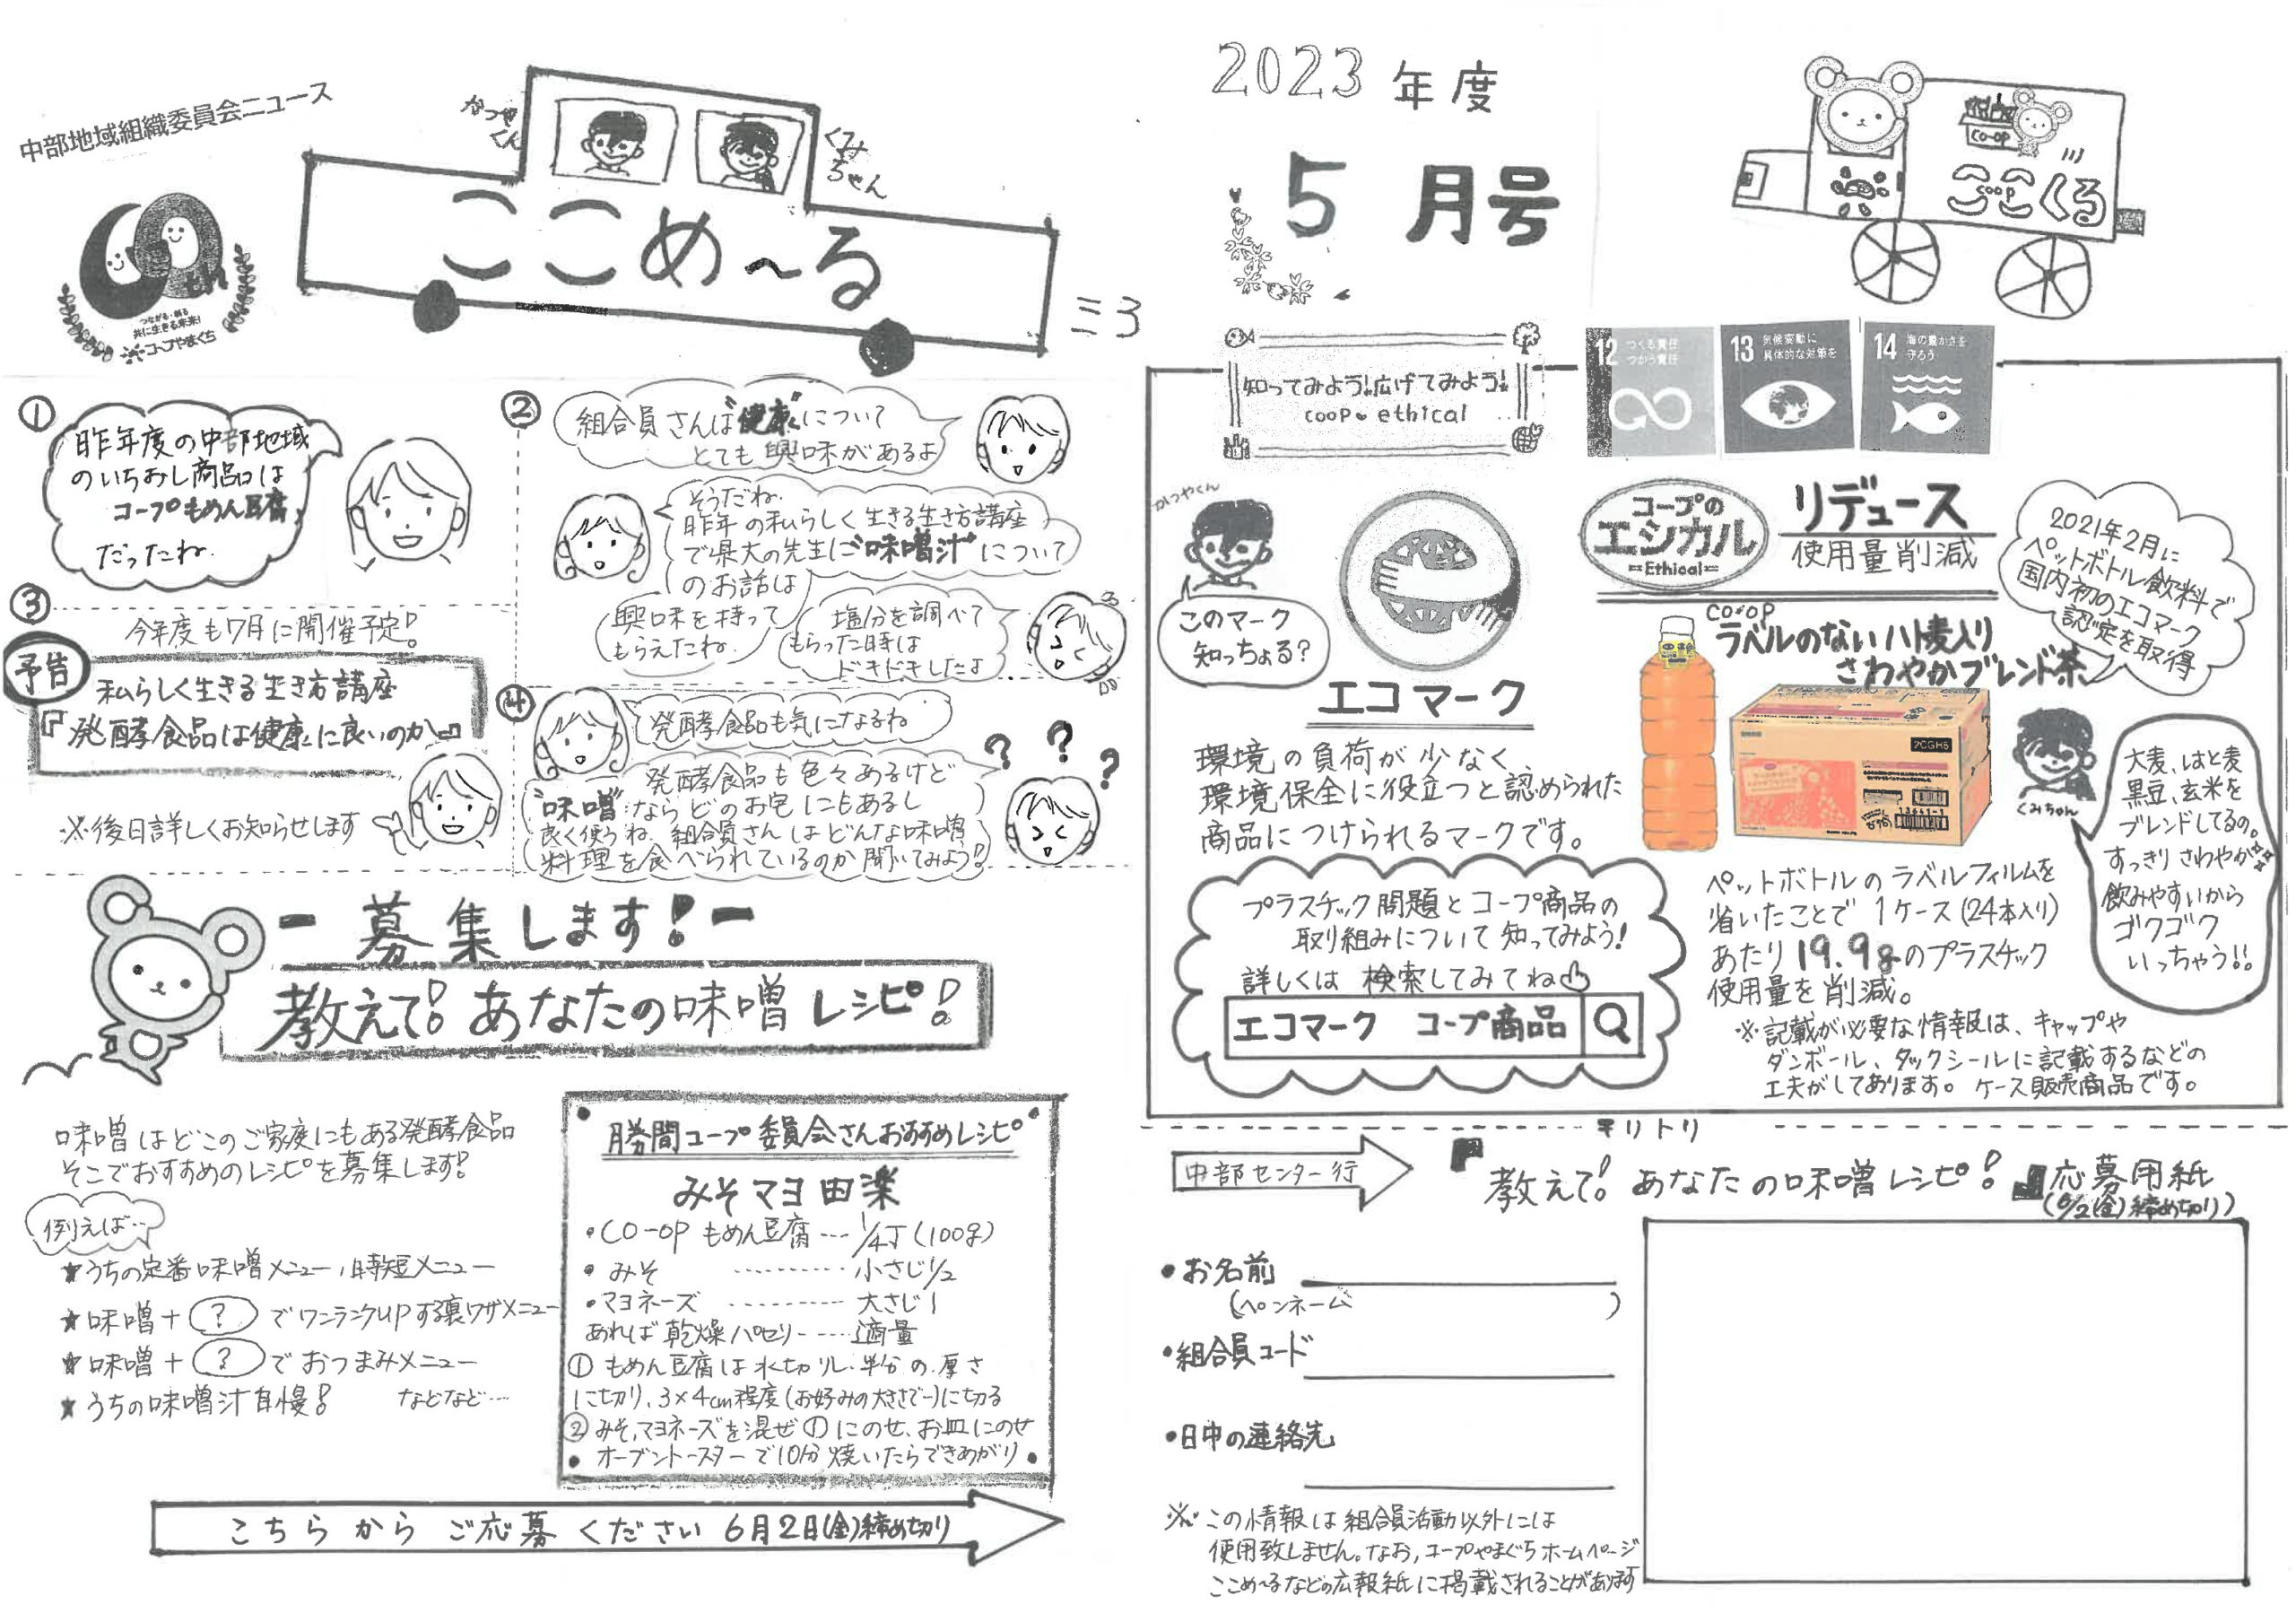 中部地域組織委員会ニュース
かつやくん
くみちゃん
ここめ〜る
つながる・創る
共に生きる未来!
コープやまぐち
2023年度
5月号
co-op
ここくる
coop
①
昨年度の中部地域
のいちおし商品は
コープもめん豆腐
だったね。
②
組合員さんは"健康"について
とても興味があるよ
そうだね。
昨年の私らしく生きる生き方講座
で県大の先生に"味噌汁"について
のお話は
興味を持って
もらえたね。
塩分を調べて
もらった時は
ドキドキしたよ
③
今年度も7月に開催予定!
予告
私らしく生きる生き方講座
『発酵食品は健康に良いのか』
※後日詳しくお知らせします
④
発酵食品も気になるね
発酵食品も色々あるけど
"味噌"ならどのお宅にもあるし
良く使うね。組合員さんはどんな味噌
料理を食べられているのか聞いてみよう!
? ? ?
ー募集します!ー
教えて!あなたの味噌レシピ!
味噌はどこのご家庭にもある発酵食品
そこでおすすめのレシピを募集します!
例えば…
★うちの定番味噌メニュー、時短メニュー
★味噌+?でワンランクUPする裏ワザメニュー
★味噌+?でおつまみメニュー
★うちの味噌汁自慢! などなど…
勝間コープ委員会さんおすすめレシピ
みそマヨ田楽
・CO-OPもめん豆腐…1/4丁(100g)
・みそ………小さじ1/2
・マヨネーズ………大さじ1
あれば乾燥パセリ……適量
① もめん豆腐は水切りし、半分の厚さ
に切り、3×4cm程度(お好みの大きさで〜)に切る
② みそ、マヨネーズを混ぜ①にのせ、お皿にのせ
オーブントースターで10分焼いたらできあがり
こちらからご応募ください 6月2日(金)締め切り
知ってみよう!広げてみよう!
coop ethical
12 つくる責任
つかう責任
13 気候変動に
具体的な対策を
14 海の豊かさを
守ろう
かつやくん
このマーク
知っちょる?
エコマーク
環境の負荷が少なく、
環境保全に役立つと認められた
商品につけられるマークです。
プラスチック問題とコープ商品の
取り組みについて知ってみよう!
詳しくは検索してみてね
エコマーク コープ商品
コープの
エシカル
Ethical
リデュース
使用量削減
2021年2月に
ペットボトル飲料で
国内初のエコマーク
認定を取得
CO・OP
ラベルのないハト麦入り
さわやかブレンド茶
2CGH5
くみちゃん
大麦、はと麦
黒豆、玄米を
ブレンドしてるの。
すっきりさわやか
飲みやすいから
ゴクゴク
いっちゃう!!
ペットボトルのラベルフィルムを
省いたことで1ケース(24本入り)
あたり19.9gのプラスチック
使用量を削減。
※記載が必要な情報は、キャップや
ダンボール、タックシールに記載するなどの
工夫がしてあります。ケース販売商品です。
キリトリ
中部センター行
『教えて!あなたの味噌レシピ!』応募用紙
(6/2(金)締め切り)
・お名前
(ペンネーム )
・組合員コード
・日中の連絡先
※この情報は組合員活動以外には
使用致しません。なお、コープやまぐちホームページ
ここめ〜るなどの広報紙に掲載されることがあります